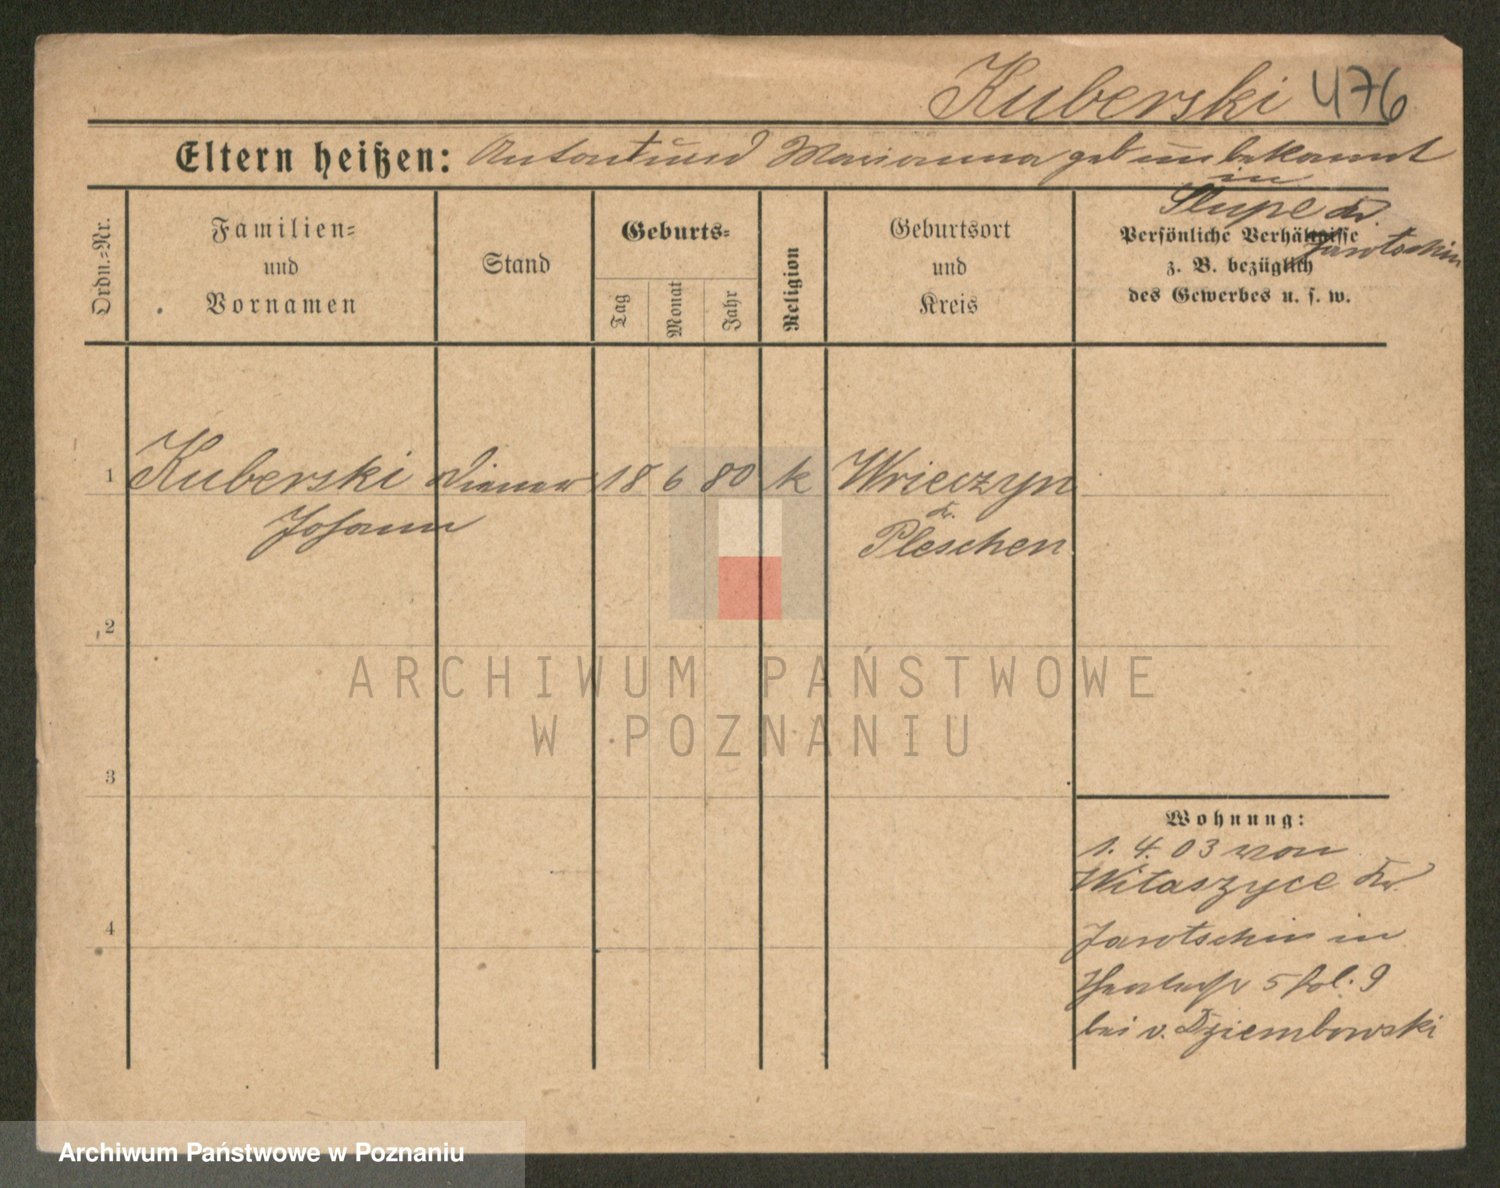 Kuberski 476
Eltern heißen: Anton und Marianna geb unbekannt
in
Slupe Kr.
Jarotschin
Ordn.-Nr.
Familien-
und
Vornamen
Stand
Geburts-
Tag
Monat
Jahr
Religion
Geburtsort
und
Kreis
Persönliche Verhältnisse
z. B. bezüglich
des Gewerbes u. s. w.
1 Kuberski Diener 18 6 80 k Wrieczyn
Johann
Kr.
Pleschen
2
3
4
ARCHIWUM PAŃSTWOWE
W POZNANIU
Wohnung:
1. 4. 03 von
Witaszyce Kr.
Jarotschin in
5 9
bei v. Dziembowski
Archiwum Państwowe w Poznaniu